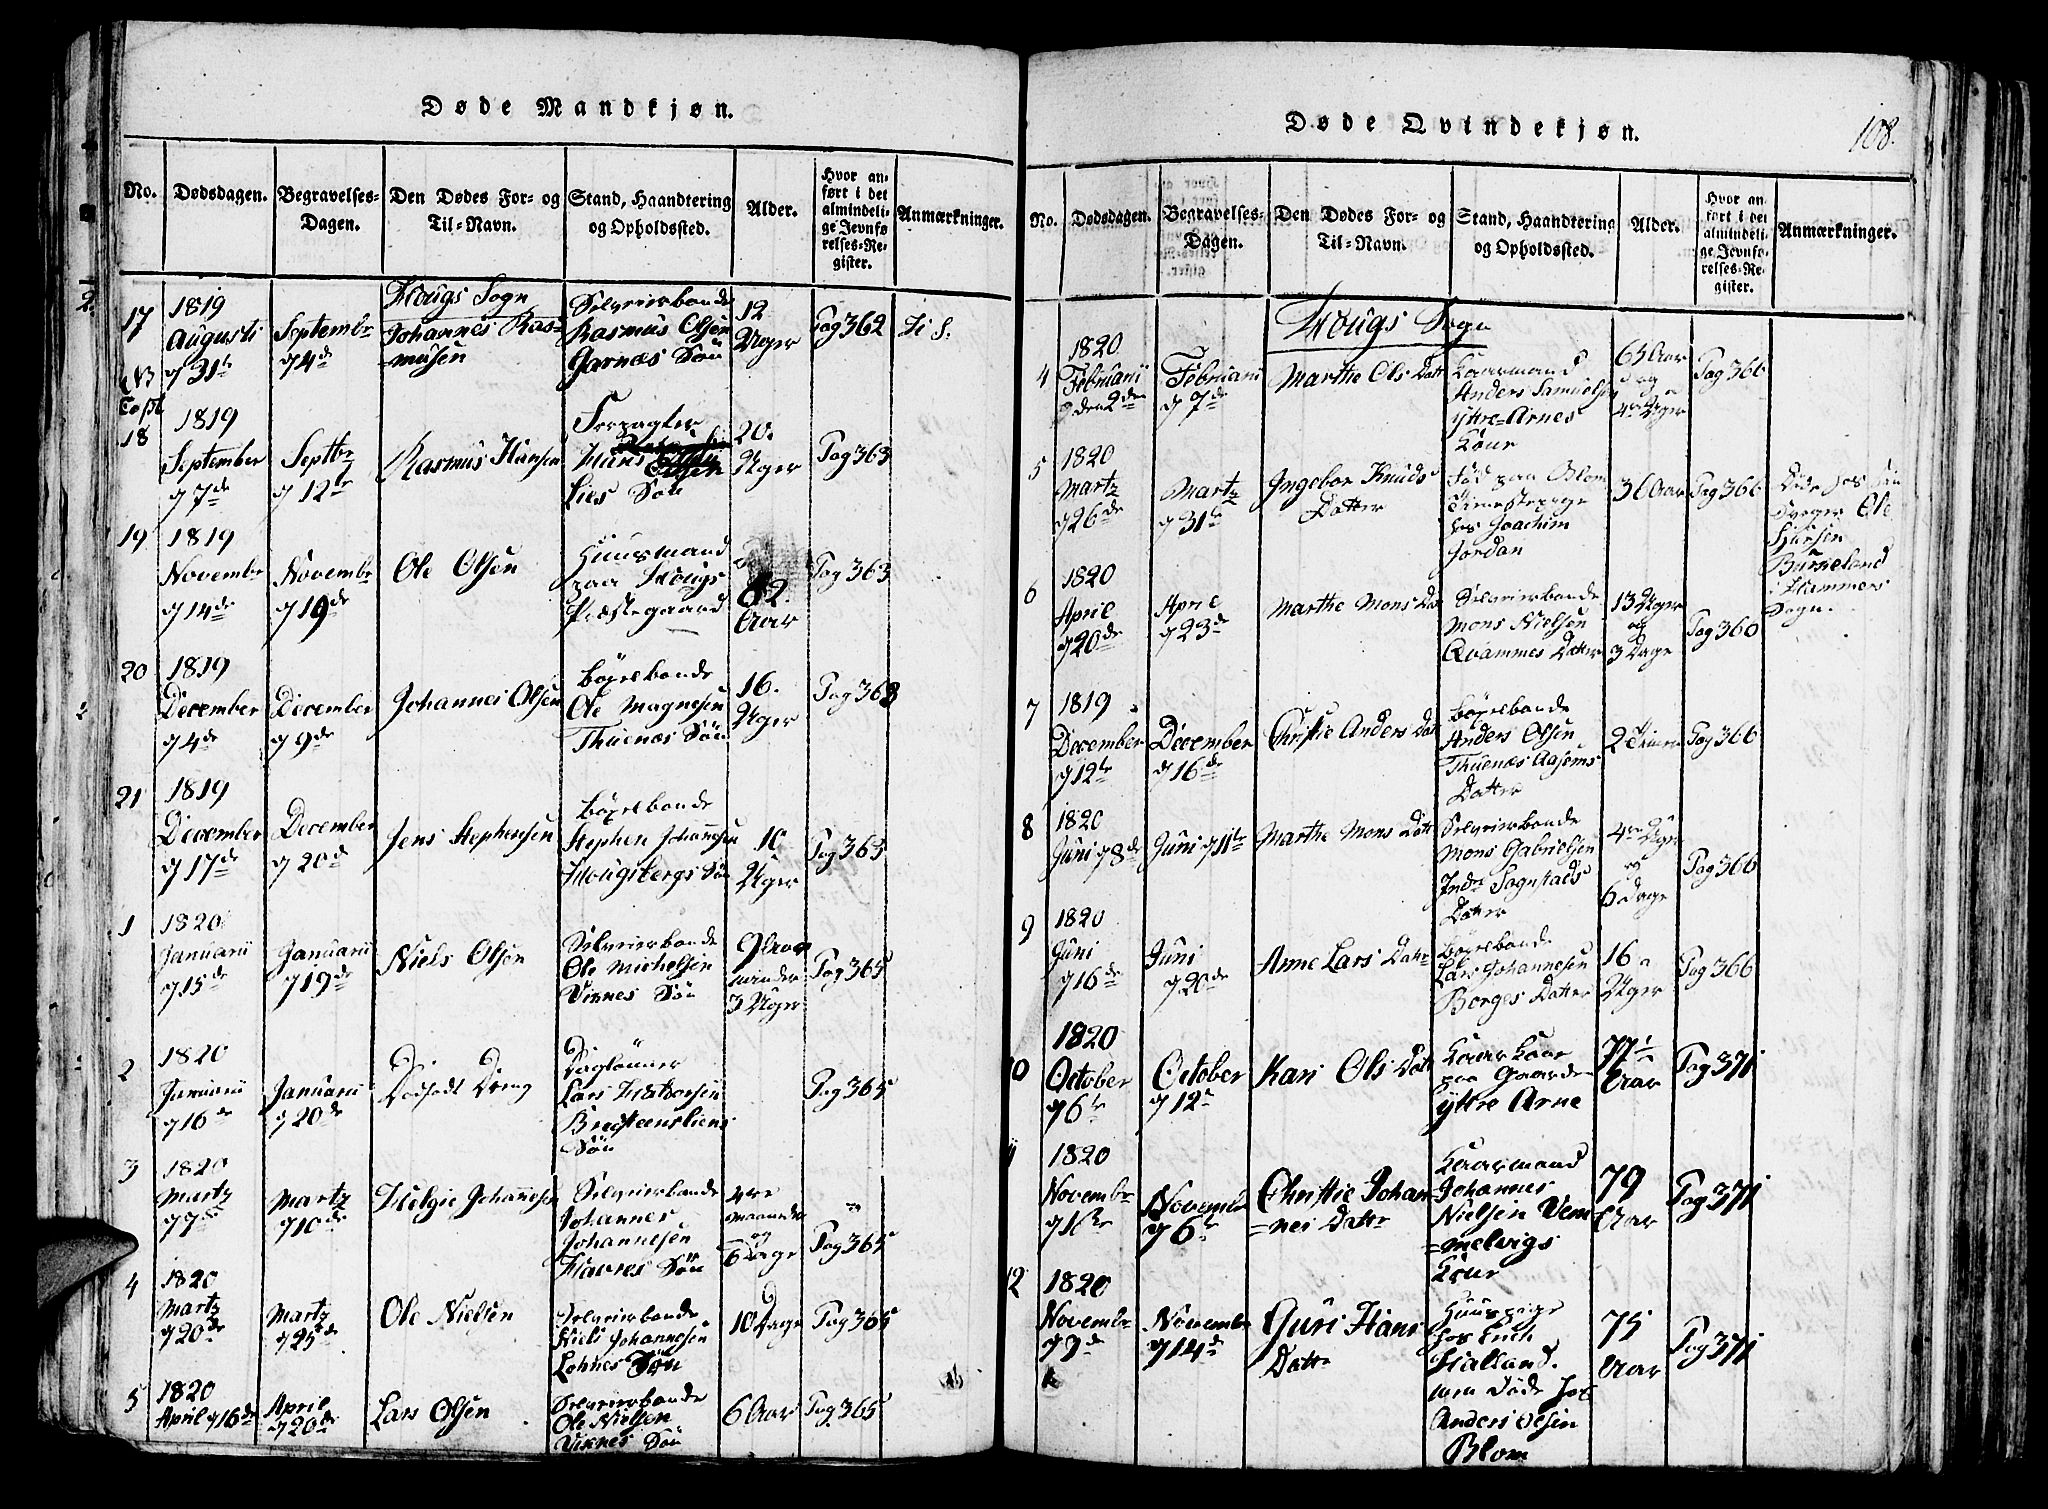 Døde Mandkjøn.
No.
Dødsdagen.
Begravelses-
Dagen.
Den Dødes For- og
Til-Navn.
Stand, Haandtering
og Opholdssted.
Alder.
Hvor an-
ført i det
almindeli-
ge Jevnfø-
relses-Re-
gister.
Anmærkninger.
Hougs Sogn
17
1819
Augusti
d 31te
Septembr
d 4de
Johannes Ras-
musen
Selveierbonde
Rasmus Olsen
Garnæs Søn
12
Uger
Pag 362
18
1819
September
d 7de
Septbr
d 12te
Rasmus Hansen
Forpagter
Hans
Lies Søn
20.
Uger
Pag 363
19
1819
Novembr
d 14de
Novembr
d 19de
Ole Olsen
Huusmand
paa Hougs
Præstegaard
82
Aar
Pag 363
20
1819
December
d 4de
December
d 9de
Johannes Olsen
Bøxelbonde
Ole Magnesen
Thuenæs Søn
16.
Uger
Pag 363
21
1819
December
d 17de
December
d 20d
Jens Stephensen
Bøxelbonde
Stephen Johannesen
Hougsbergs Søn
10
Uger
Pag 363
1
1820
Januarii
d 15de
Januarii
d 19de
Niels Olsen
Selveierbonde
Ole Michelsen
Vixnes Søn
9 Aar
minder
3 Uger
Pag 365
2
1820
Januarii
d 16de
Januarii
d 20de
Dødfødt Dreng
Daglønner
Lars
Søn
Pag 365
3
1820
Martz
d 7de
Martz
d 10de
Helgie Johannesen
Selveierbonde
Johannes
Johannesen
Havres Søn
4re
Maaneder
og
6 Dage
Pag 365
4
1820
Martz
d 20de
Martz
d 25de
Ole Nielsen
Selveierbonde
Niels Johannesen
Lohnes Søn
10 Dage
Pag 365
5
1820
April d 16de
April
d 20de
Lars Olsen
Selveierbonde
Ole Nielsen
Vixnes Søn
6 Aar
Pag 365
Døde Qvindekjøn.
108.
No.
Dødsdagen.
Begravelses-
Dagen.
Den Dødes For- og
Til-Navn.
Stand, Haandtering
og Opholdssted.
Alder.
Hvor an-
ført i det
almindeli-
ge Jevnfø-
relses-Re-
gister.
Anmærkninger.
Hougs Sogn
4
1820
Februarii
den 2den
Februarii
d 7de
Marthe Ols Datt
Kaarmand
Anders Samuelsen
yttre-Arnes
Kone
65 Aar
og
4re Uger
Pag 366
5
1820
Martz
d 26de
Martz
d 31te
Ingebor Knuds
Datter
Fød paa Blom
Tienestepige
hos Joachim
Jordan
36 Aar
Pag 366
Døde hos sin
Svoger Ole
Hansen
Burkeland
i Hammers
Sogn.
6
1820
April
d 20de
April
d 23de
Marthe Mons Dat
Selveierbonde
Mons Nielsen
Qvammes Datter
13 Uger
og
3 Dage
Pag 360
7
1819
December
d 12te
December
d 16de
Christie Anders Dat
Bøxelbonde
Anders Olsen
Thuenæs Aasens
Datter
2 Timer
Pag 366
8
1820
Juni d 8de
Juni d 11te
Marthe Mons Datt
Selveierbonde
Mons Gabrielsen
Indre Sognstads
Datter
4re Uger
og
6 Dage
Pag 366
9
1820
Juni
d 16de
Juni
d 20de
Anne Lars Datr
Bøxelbonde
Lars Johannesen
Borges Datter
16
Uger
Pag 366
10
1820
October
d 6te
October
d 12te
Kari Ols Datt
Kaar Kone
paa Gaarden
yttre Arne
77
Aar
Pag 371
11
1820
Novembr
d 1ste
Novembr
d 6te
Christie Johan
=nes Dattr
Kaarmand
Johannes
Nielsen Vem
=melvigs
Kone
79
Aar
Pag 371
12
1820
Novembr
d 9de
Novembr
d 14de
Guri Hans
Dattr
Huuspige
hos Erich
Halland.
men Døde hos
Anders Olsen
Blom
75
Aar
Pag 371